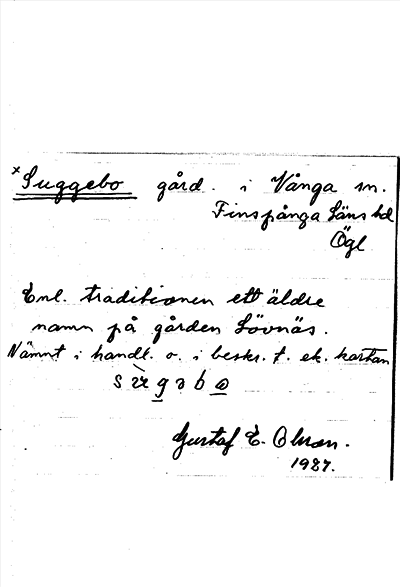 × Suggebo gård. i Vånga sn.
Finspånga Läns hd
Ögl
Enl. traditionen ett äldre
namn på gården Lövnäs.
Nämnt i handl. o. i beskr. t. ek. kartan
Gustaf E. Olsson.
1927.